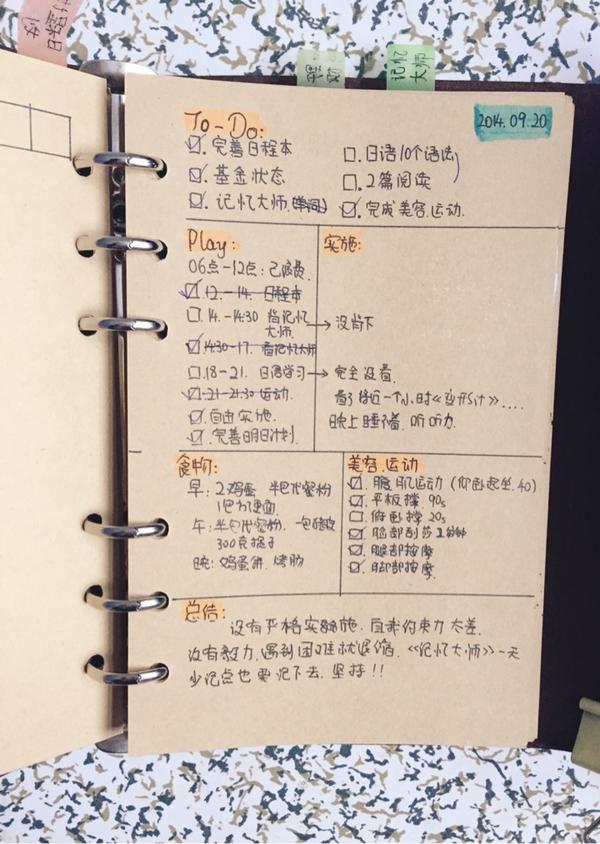 记忆
大师
2014.09.20
To-Do:
完善日程本
基金状态
记忆大师.单词
日语10个语法
2篇阅读
完成美容.运动.
Play:
06点-12点:已浪费.
12.-14. 日程本
14.-14:30 看记忆
大师.
14:30-17. 看记忆大师
18-21. 日语学习
21-21:30 运动.
自由实施.
完善明日计划.
实施:
没背下
完全没看.
看了接近一个小时《》....
晚上睡不着.听听力.
食物:
早:2鸡蛋 半包代餐粉
1包方便面
午:半包代餐粉.一包
300克提子
晚:鸡蛋饼.烤肠
美容.运动
腹肌运动(仰卧起坐.40)
平板撑.90s
俯卧撑 20s
脸部刮莎 分钟
腿部按摩
脚部按摩.
总结:
没有严格实施.自我约束力太差.
没有毅力.遇到困难就退缩.《记忆大师》一天
少记点也要记下去.坚持!!